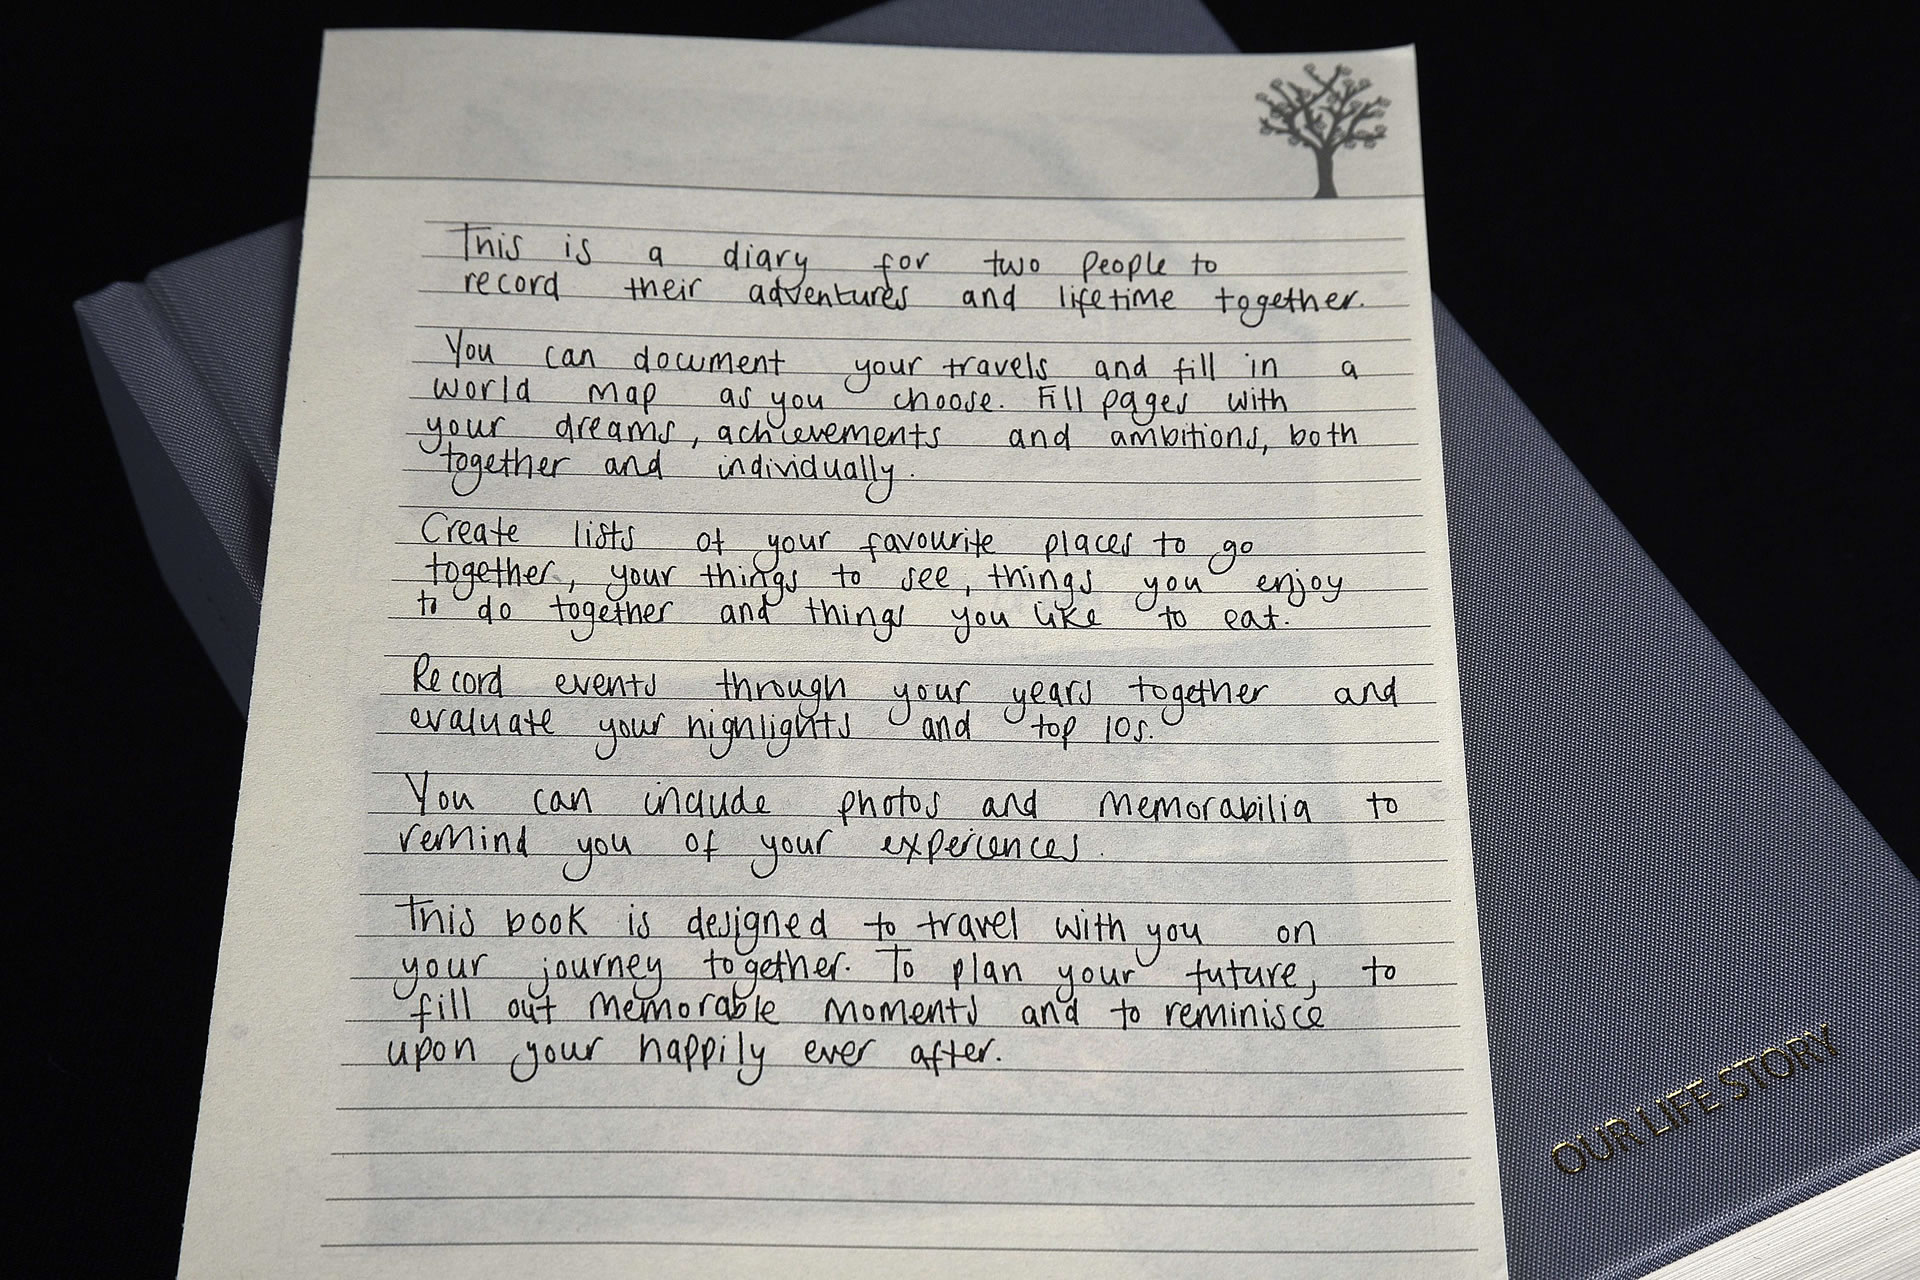 This is a diary for two people to
record their adventures and lifetime together.
You can document your travels and fill in a
world map as you choose. Fill pages with
your dreams, achievements and ambitions, both
together and individually.
Create lists of your favourite places to go
together, your things to see, things you enjoy
to do together and things you like to eat.
Record events through your years together and
evaluate your highlights and top 10s.
You can include photos and memorabilia to
remind you of your experiences.
This book is designed to travel with you on
your journey together. To plan your future, to
fill out memorable moments and to reminisce
upon your happily ever after.
OUR LIFE STORY